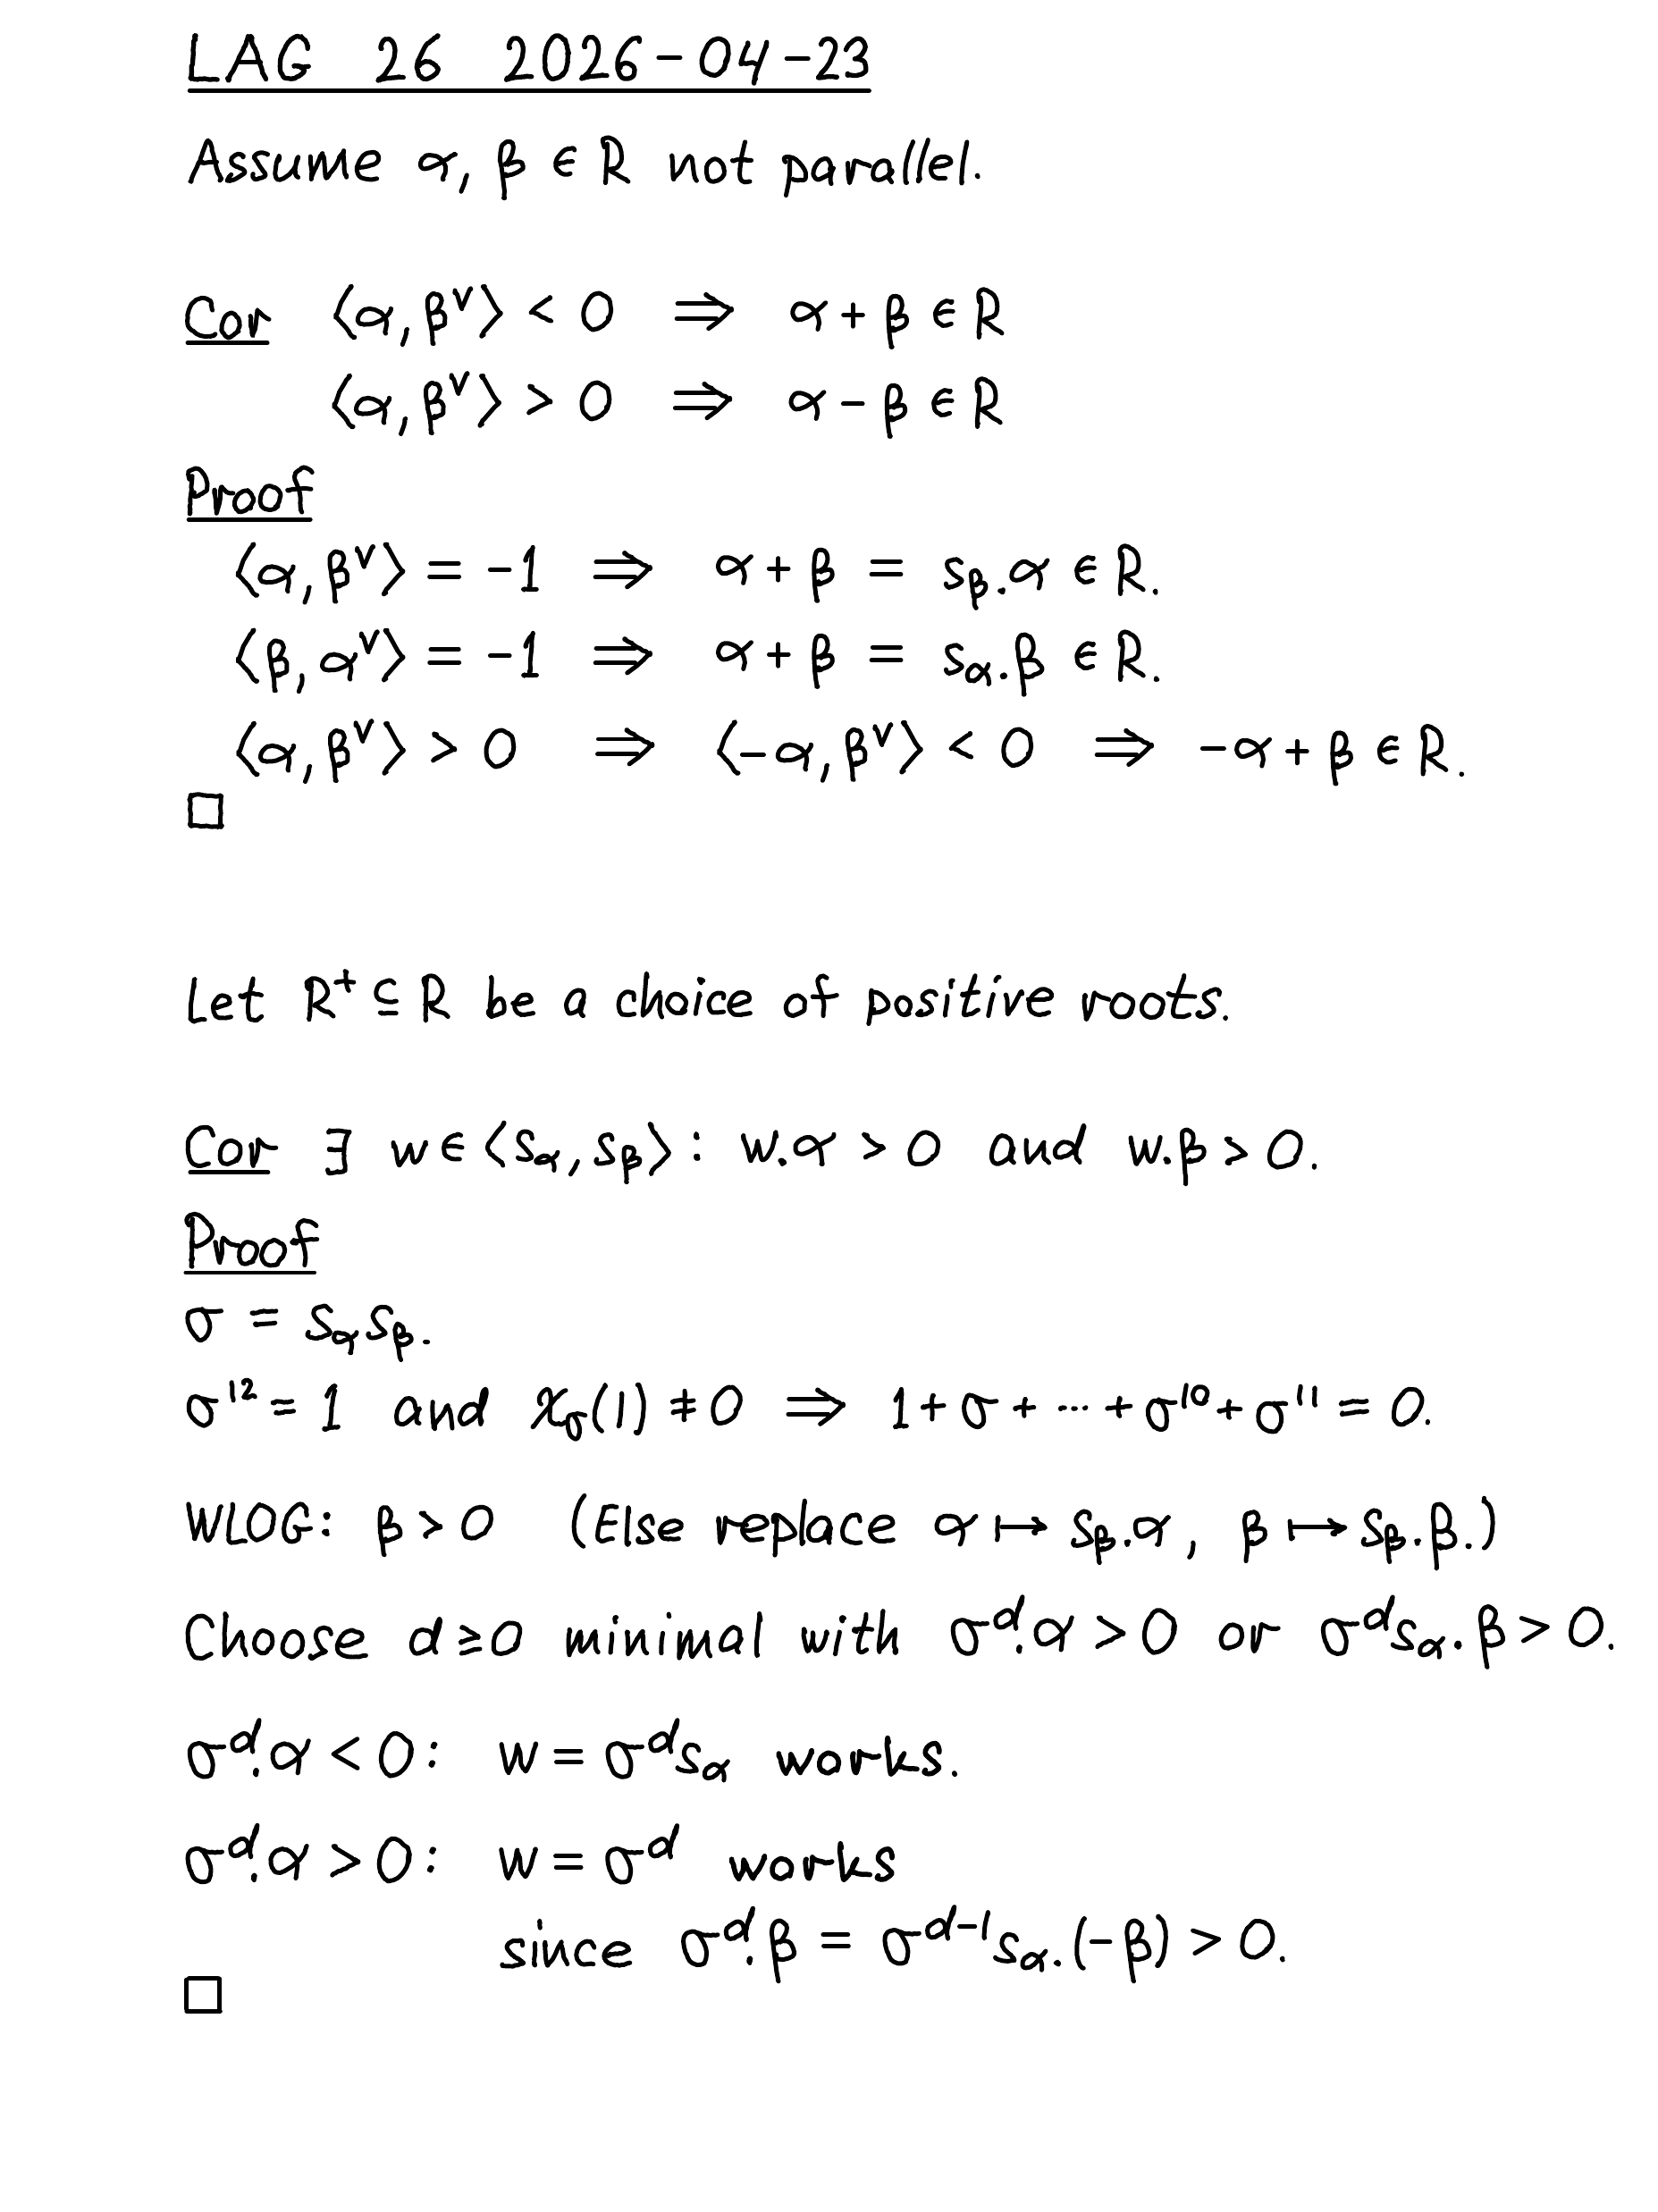 LAG 26 2026-04-23
Assume α, β ∈ R not parallel.
Cor ⟨α, β^∨⟩ < 0 ⇒ α + β ∈ R
⟨α, β^∨⟩ > 0 ⇒ α - β ∈ R
Proof
⟨α, β^∨⟩ = -1 ⇒ α + β = s_β.α ∈ R.
⟨β, α^∨⟩ = -1 ⇒ α + β = s_α.β ∈ R.
⟨α, β^∨⟩ > 0 ⇒ ⟨-α, β^∨⟩ < 0 ⇒ -α + β ∈ R.
□
Let R^+ ⊆ R be a choice of positive roots.
Cor ∃ w ∈ ⟨s_α, s_β⟩ : w.α > 0 and w.β > 0.
Proof
σ = s_α s_β.
σ^12 = 1 and χ_σ(1) ≠ 0 ⇒ 1 + σ + ⋯ + σ^10 + σ^11 = 0.
WLOG: β > 0 (Else replace α ↦ s_β.α, β ↦ s_β.β.)
Choose d ≥ 0 minimal with σ^d.α > 0 or σ^d s_α.β > 0.
σ^d.α < 0: w = σ^d s_α works.
σ^d.α > 0: w = σ^d works
since σ^d.β = σ^{d-1} s_α.(-β) > 0.
□